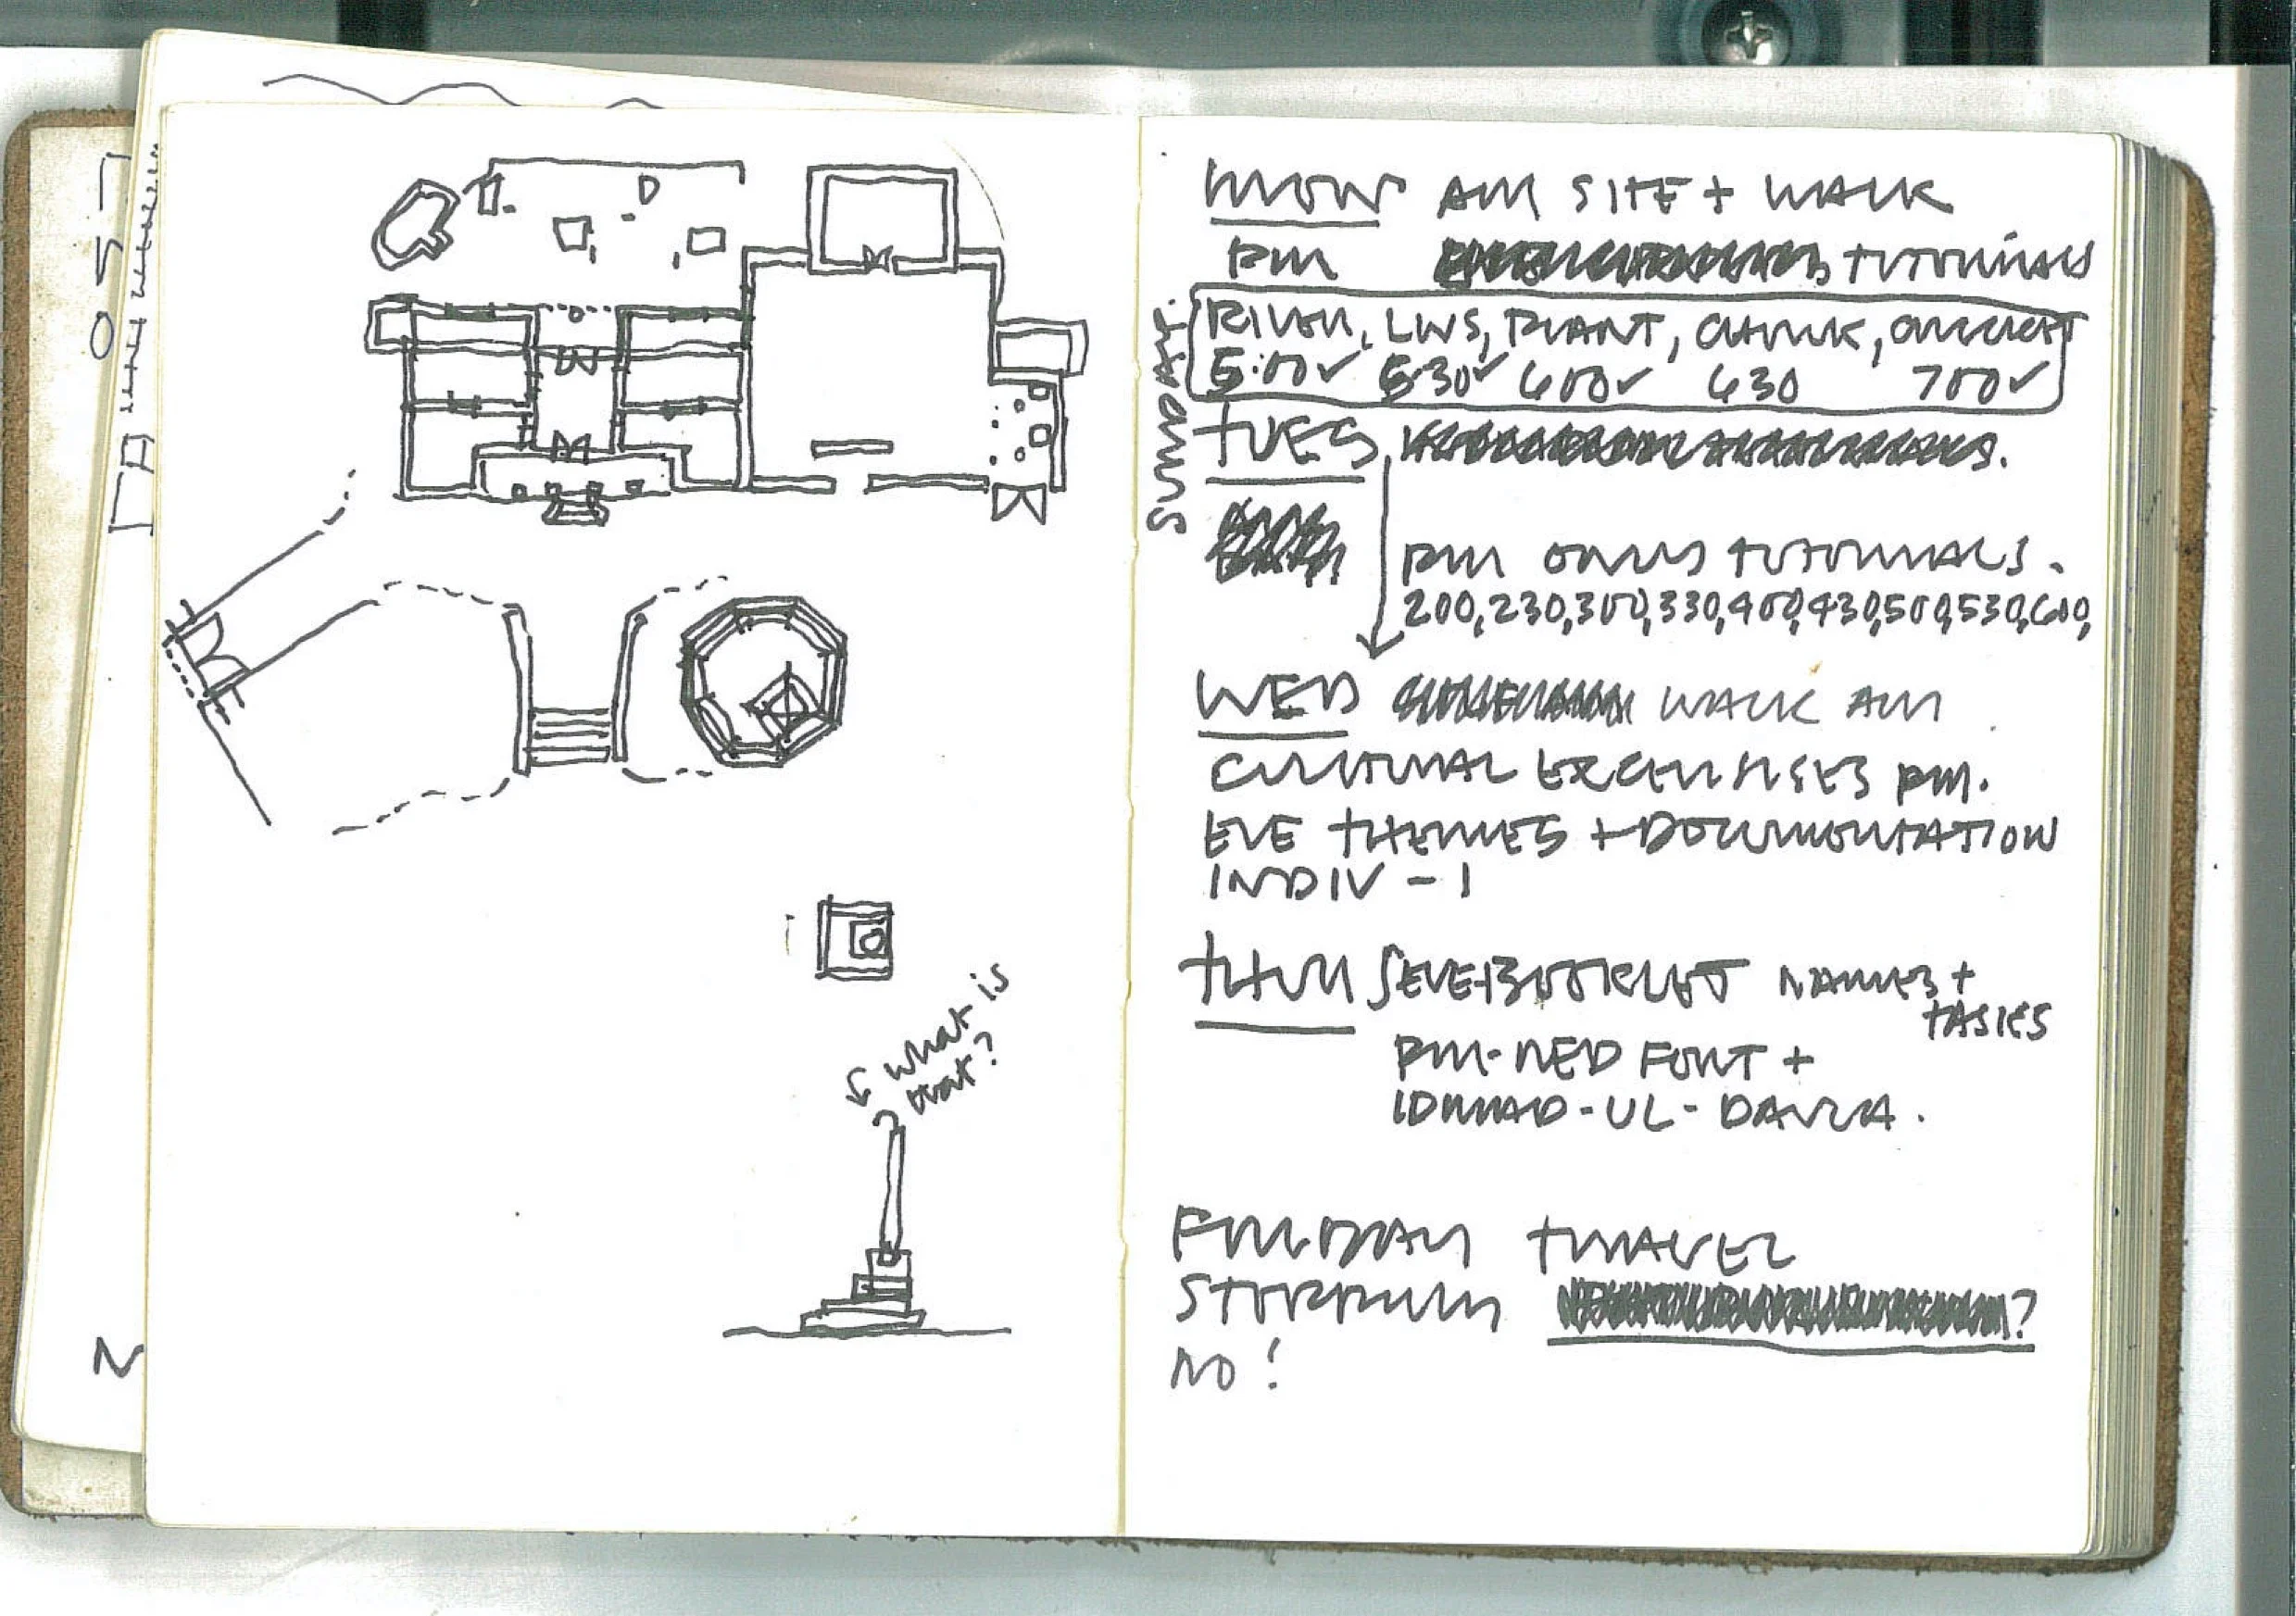 what is
that?
MON AM SITE + WALK
PM TUTORIALS
SUNDAY.
RIVER, LWS, PLANT, CHUNK,
5:00✓ 5:30✓ 600✓ 630 700✓
TUES
PM TUTORIALS.
200, 230, 300, 330, 400, 430, 500, 530, 600,
WED WALK AM
CULTURAL EXCERSISES PM.
EVE THEMES + DOCUMENTATION
INDIV - 1
THUR NAMES +
TASKS
PM - RED FONT +
- UL - DAULA.
FRIDAY TRAVEL
?
NO!